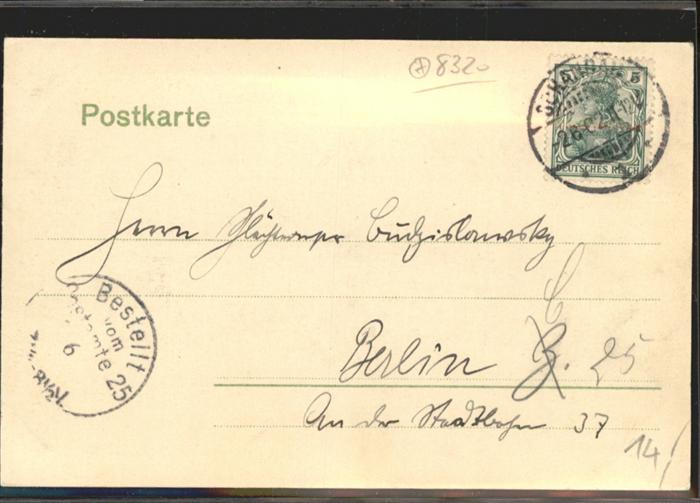 8320
5
DEUTSCHES REICH
Postkarte
Herrn Schlächtermstr Budzislawsky
Bestellt
vom
Postamte 25
6
C
Berlin Z. 25
An der Stadtbahn 37
14